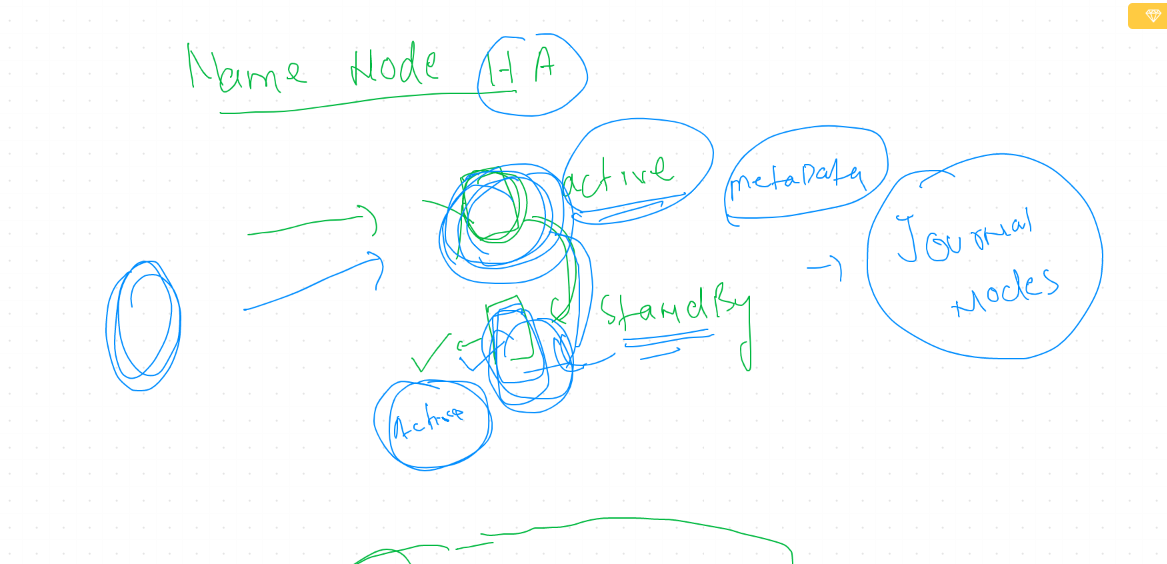 Name Node HA
active
metaData
Journal
Nodes
StandBy
Active